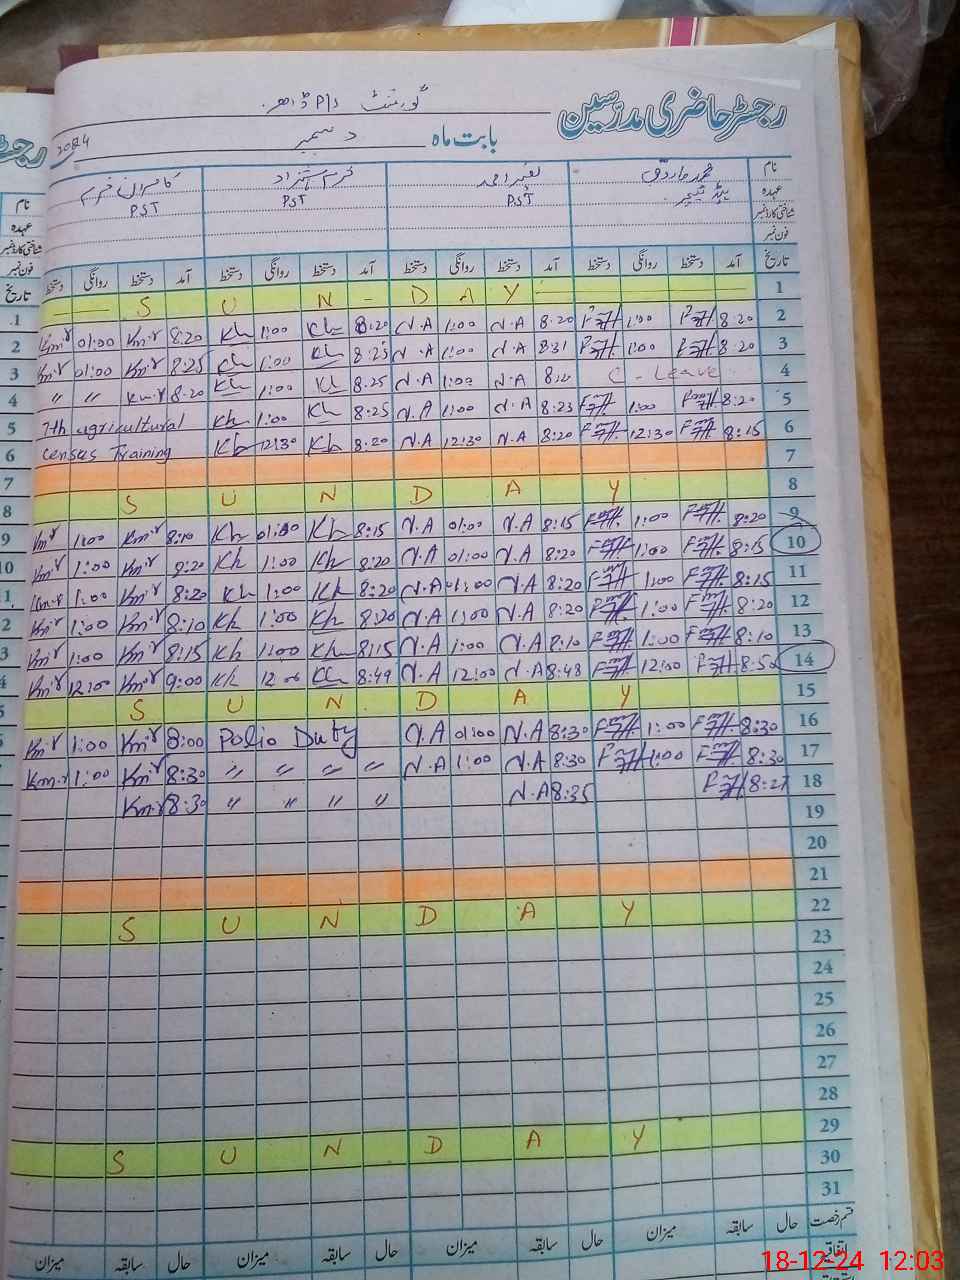 رجسٹر حاضری مدرسین
گورنمنٹ P/S ڈاھر
بابت ماہ دسمبر 2024
نام محمد فاروق نصیر احمد خرم شہزاد کامران خرم
عہدہ ہیڈ ٹیچر PST PST PST
شناختی کارڈ نمبر
فون نمبر
تاریخ آمد دستخط روانگی دستخط آمد دستخط روانگی دستخط آمد دستخط روانگی دستخط آمد دستخط روانگی دستخط
S U N D A Y 1
Km.r 01:00 Km.r 8:20 Kh 1:00 Kh 8:20 N.A 1:00 N.A 8:20 1:00 8:20 2
Km.r 01:00 Km.r 8:25 Kh 1:00 Kh 8:25 N.A 1:00 N.A 8:31 1:00 8:20 3
" " Km.r 8:20 Kh 1:00 Kh 8:25 N.A 1:00 N.A C-Leave 4
7th agricultural Kh 1:00 Kh 8:25 N.A 1:00 N.A 8:23 1:00 8:20 5
Census Training Kh 12:30 Kh 8:20 N.A 12:30 N.A 8:20 12:30 8:15 6
7
S U N D A Y 8
Km.r 1:00 Km.r 8:10 Kh 01:00 Kh 8:15 N.A 01:00 N.A 8:15 1:00 8:20 9
Km.r 1:00 Km.r 8:20 Kh 1:00 Kh 8:20 N.A 01:00 N.A 8:20 1:00 8:15 10
Km.r 1:00 Km.r 8:20 Kh 1:00 Kh 8:20 N.A 01:00 N.A 8:20 1:00 8:15 11
Km.r 1:00 Km.r 8:10 Kh 1:00 Kh 8:20 N.A 1:00 N.A 8:20 1:00 8:20 12
Km.r 1:00 Km.r 8:15 Kh 1:00 Kh 8:15 N.A 1:00 N.A 8:10 1:00 8:10 13
Km.r 12:00 Km.r 9:00 Kh 12:00 Kh 8:49 N.A 12:00 N.A 8:48 12:00 8:50 14
S U N D A Y 15
Km.r 1:00 Km.r 8:00 Polio Duty N.A 01:00 N.A 8:30 1:00 8:30 16
Km.r 1:00 Km.r 8:30 " " " " N.A 1:00 N.A 8:30 1:00 8:30 17
Km.r 8:30 " " " " N.A 8:35 8:27 18
19
20
21
S U N D A Y 22
23
24
25
26
27
28
S U N D A Y 29
30
31
قسم رخصت حال سابقہ میزان حال سابقہ میزان حال سابقہ میزان حال سابقہ میزان
اتفاقیہ
18-12-24 12:03